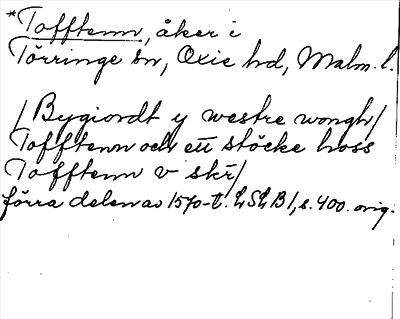 *Tofftenn, åker i
Törringe sn, Oxie hd, Malm. l.
/Bygiordt y westre wongh/
Tofftenn och ett stöcke hoss
Tofftenn v skr/
förra delen av 1570-t. LSLB1, s. 400. orig.